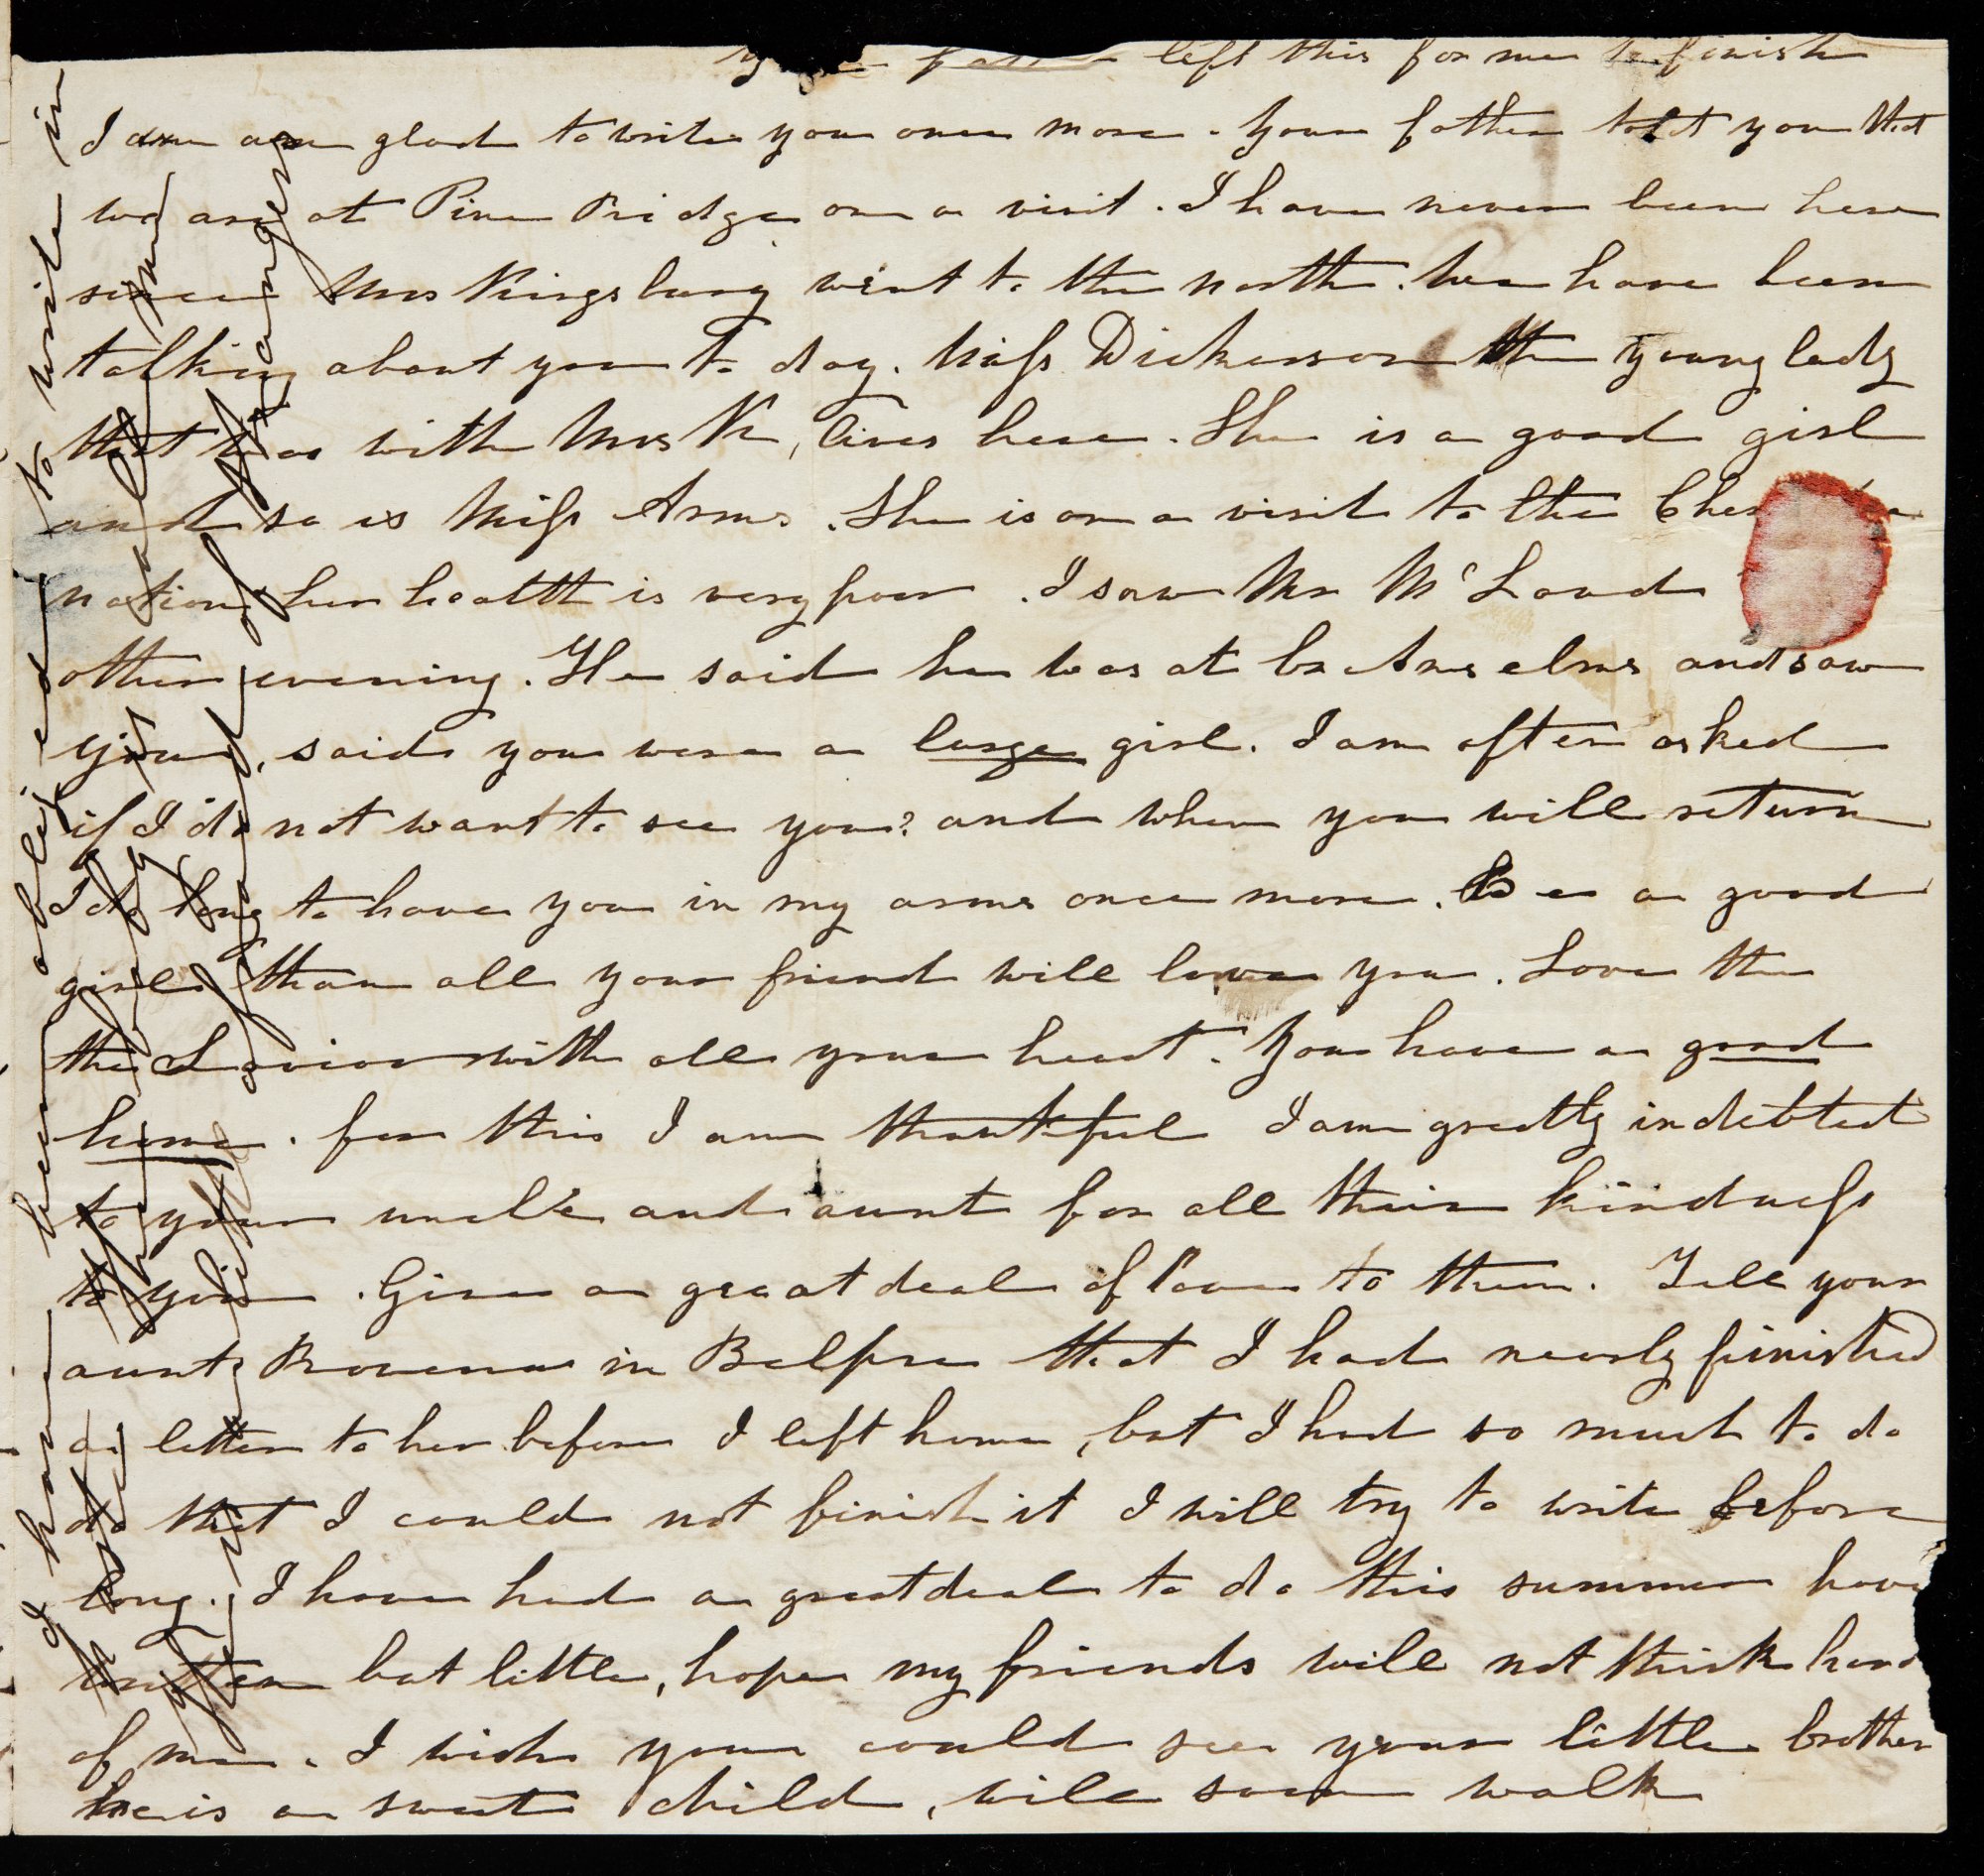 left this for me to finish
I am am glad to write you once more. Your father told you that
we are at Pine Ridge on a visit. I have never been here
since Mrs Kingsbury went to the north. We have been
talking about you to day. Miss Dickerson the young lady
that was with Mrs K, lives here. She is a good girl
and so is Miss Arms. She is on a visit to the
nation, her health is very poor. I saw Mr McLoud
other evening. He said he was at br Anselms and saw
you, said you were a large girl. I am often asked
if I do not want to see you? and when you will return
I do long to have you in my arms once more. Be a good
girl than all your friend will love you. Love the
the Savior with all your heart. You have a good
home. for this I am thankful I am greatly indebted
to your uncle and aunt for all their kindness
to you. Give a great deal of love to them. Tell your
aunt Rowena in Belpre that I had nearly finished
a letter to her before I left home, but I had so much to do
do that I could not finish it I will try to write before
long. I have had a great deal to do this summer have
written but little, hope my friends will not think hard
of me. I wish you could see your little brother
he is a sweet child, will soon walk
I have been obliged to write in